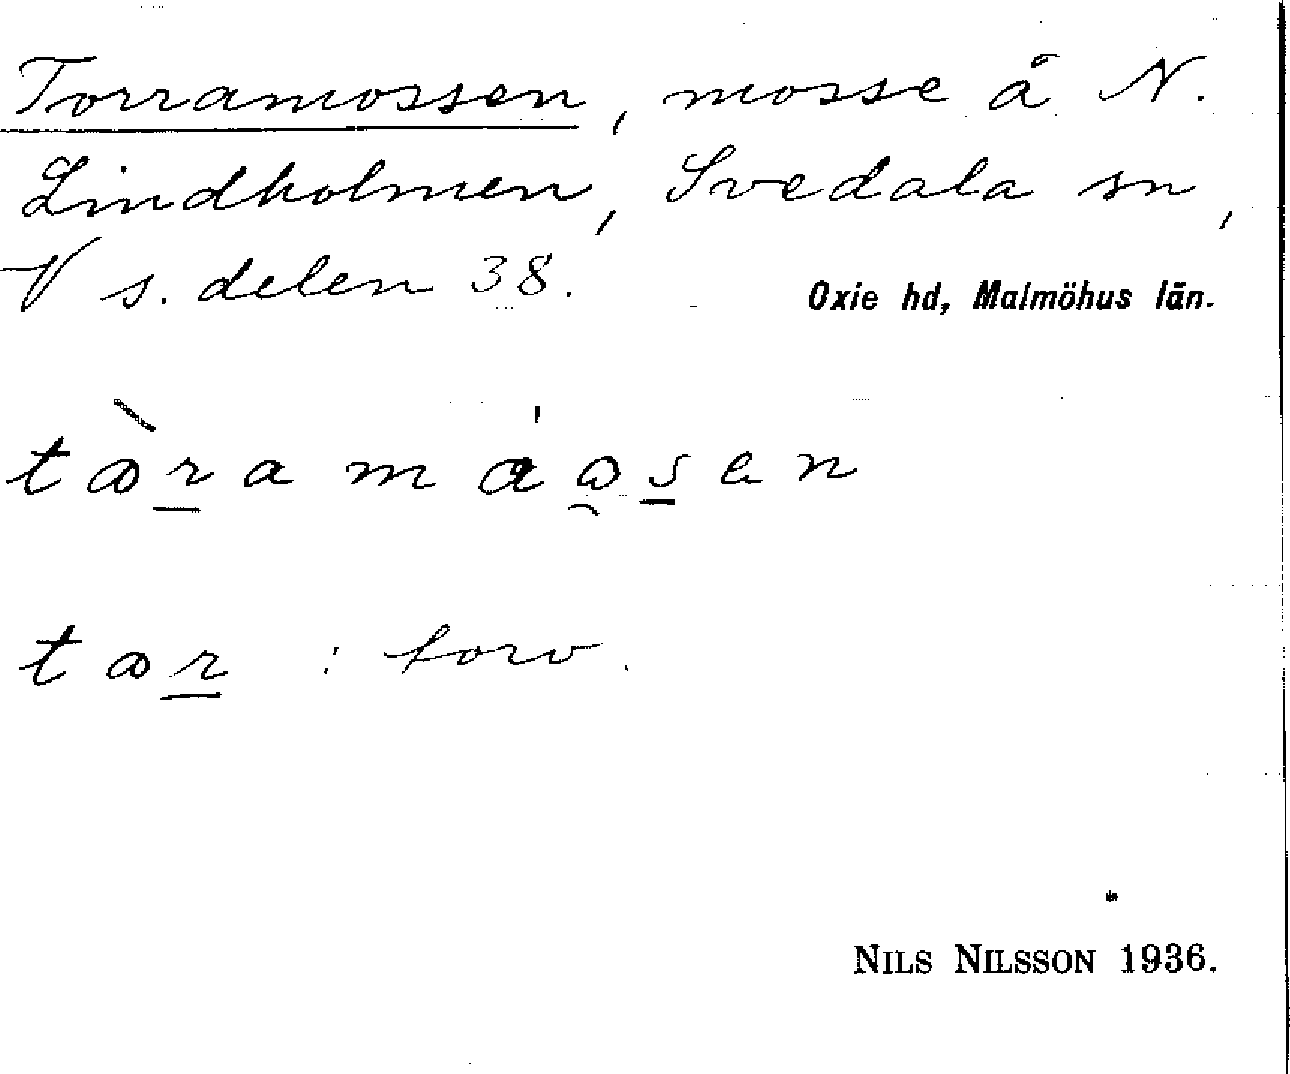 Torramossen, mosse å N.
Lindholmen, Svedala sn,
V s. delen 38.
Oxie hd, Malmöhus län.
tòramáosen
tor : torv.
NILS NILSSON 1936.